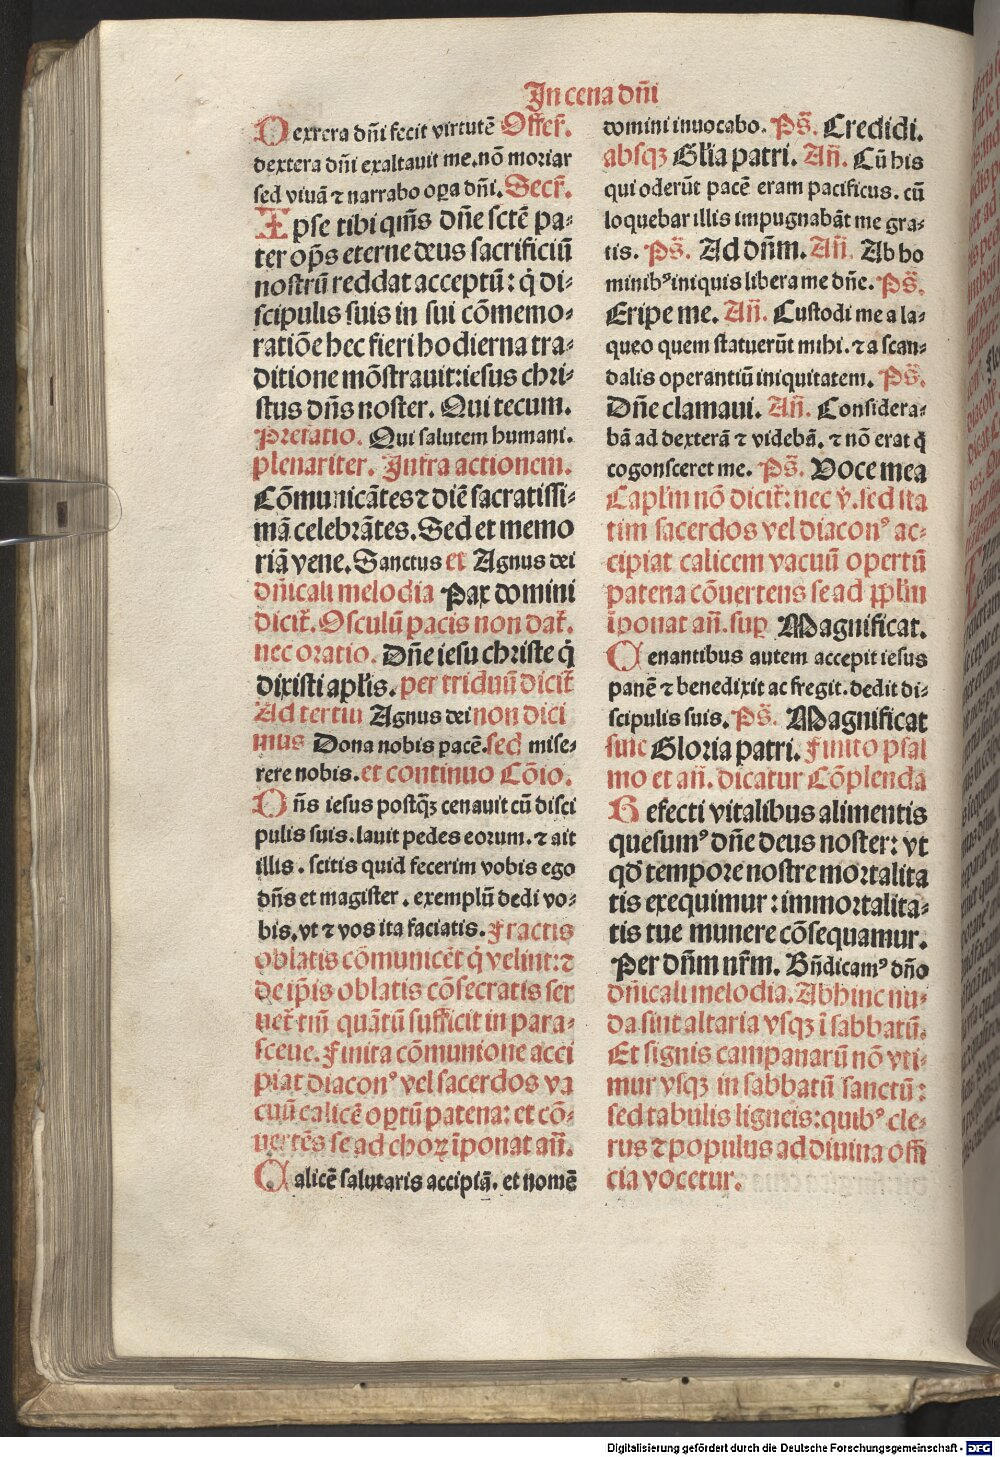 In cena dn̄i
Dextera dn̄i fecit virtutē Offer̄.
dextera dn̄i exaltauit me. nō moriar
sed viuā ⁊ narrabo oꝑa dn̄i. Secr̄.
Ipse tibi qm̄s dn̄e sctē pa⸗
ter op̄s eterne deus sacrificiū
nostrū reddat acceptū: q̇ di⸗
scipulis suis in sui cōmemo⸗
ratiōe hec fieri hodierna tra⸗
ditione mōstrauit: iesus chri⸗
stus dn̄s noster. Qui tecum.
Prefatio. Qui salutem humani.
plenariter. Infra actionem.
Cōmunicātes ⁊ diē sacratissi⸗
mā celebrātes. Sed et memo
riā vene. Sanctus et Agnus dei
dn̄icali melodia Pax domini
dicit̄. Osculū pacis non dat̄.
nec oratio. Dn̄e iesu christe q̇
dixisti apl̄is. per triduū dicit̄
Ad tertiū Agnus dei non dici
mus Dona nobis pacē. sed mise⸗
rere nobis. et continuo Cōio.
Dn̄s iesus postq̄ꝫ cenauit cū disci
pulis suis. lauit pedes eorum. ⁊ ait
illis. scitis quid fecerim vobis ego
dn̄s et magister. exemplū dedi vo⸗
bis. vt ⁊ vos ita faciatis. Fractis
oblatis cōmunicēt q̇ velint: ⁊
de ip̄is oblatis cōsecratis ser
uet̄ tm̄ quātū sufficit in para⸗
sceue. Finita cōmunione acci
piat diaconꝰ vel sacerdos va
cuū calicē oꝑtū patena: et cō⸗
uertēs se ad choꝝ īponat an̄.
Calicē salutaris accipiā. et nomē
domini inuocabo. Ps̄. Credidi.
absqꝫ Gl̄ia patri. An̄. Cū his
qui oderūt pacē eram pacificus. cū
loquebar illis impugnabāt me gra⸗
tis. Ps̄. Ad dn̄m. An̄. Ab ho
minibꝰ iniquis libera me dn̄e. Ps̄.
Eripe me. An̄. Custodi me a la⸗
queo quem statuerūt mihi. ⁊ a scan⸗
dalis operantiū iniquitatem. Ps̄.
Dn̄e clamaui. An̄. Considera⸗
bā ad dexterā ⁊ videbā. ⁊ nō erat q̇
cogonsceret me. Ps̄. Voce mea
Capl̄m nō dicit̄: nec v̄. sed sta
tim sacerdos vel diaconꝰ ac⸗
cipiat calicem vacuū opertū
patena cōuertens se ad ppl̄m
īponat an̄. suꝑ Magnificat.
Cenantibus autem accepit iesus
panē ⁊ benedixit ac fregit. dedit di⸗
scipulis suis. Ps̄. Magnificat
sine Gloria patri. Finito psal
mo et an̄. dicatur Cōplenda
Refecti vitalibus alimentis
quesumꝰ dn̄e deus noster: vt
qd̄ tempore nostre mortalita
tis exequimur: immortalita⸗
tis tue munere cōsequamur.
Per dn̄m nr̄m. Bn̄dicamꝰ dn̄o
dn̄icali melodia. Abhinc nu⸗
da sint altaria vsqꝫ ī sabbatū.
Et signis campanarū nō vti⸗
mur vsqꝫ in sabbatū sanctū:
sed tabulis ligneis: quibꝰ cle⸗
rus ⁊ populus ad diuina offi
cia vocetur.
Digitalisierung gefördert durch die Deutsche Forschungsgemeinschaft - DFG